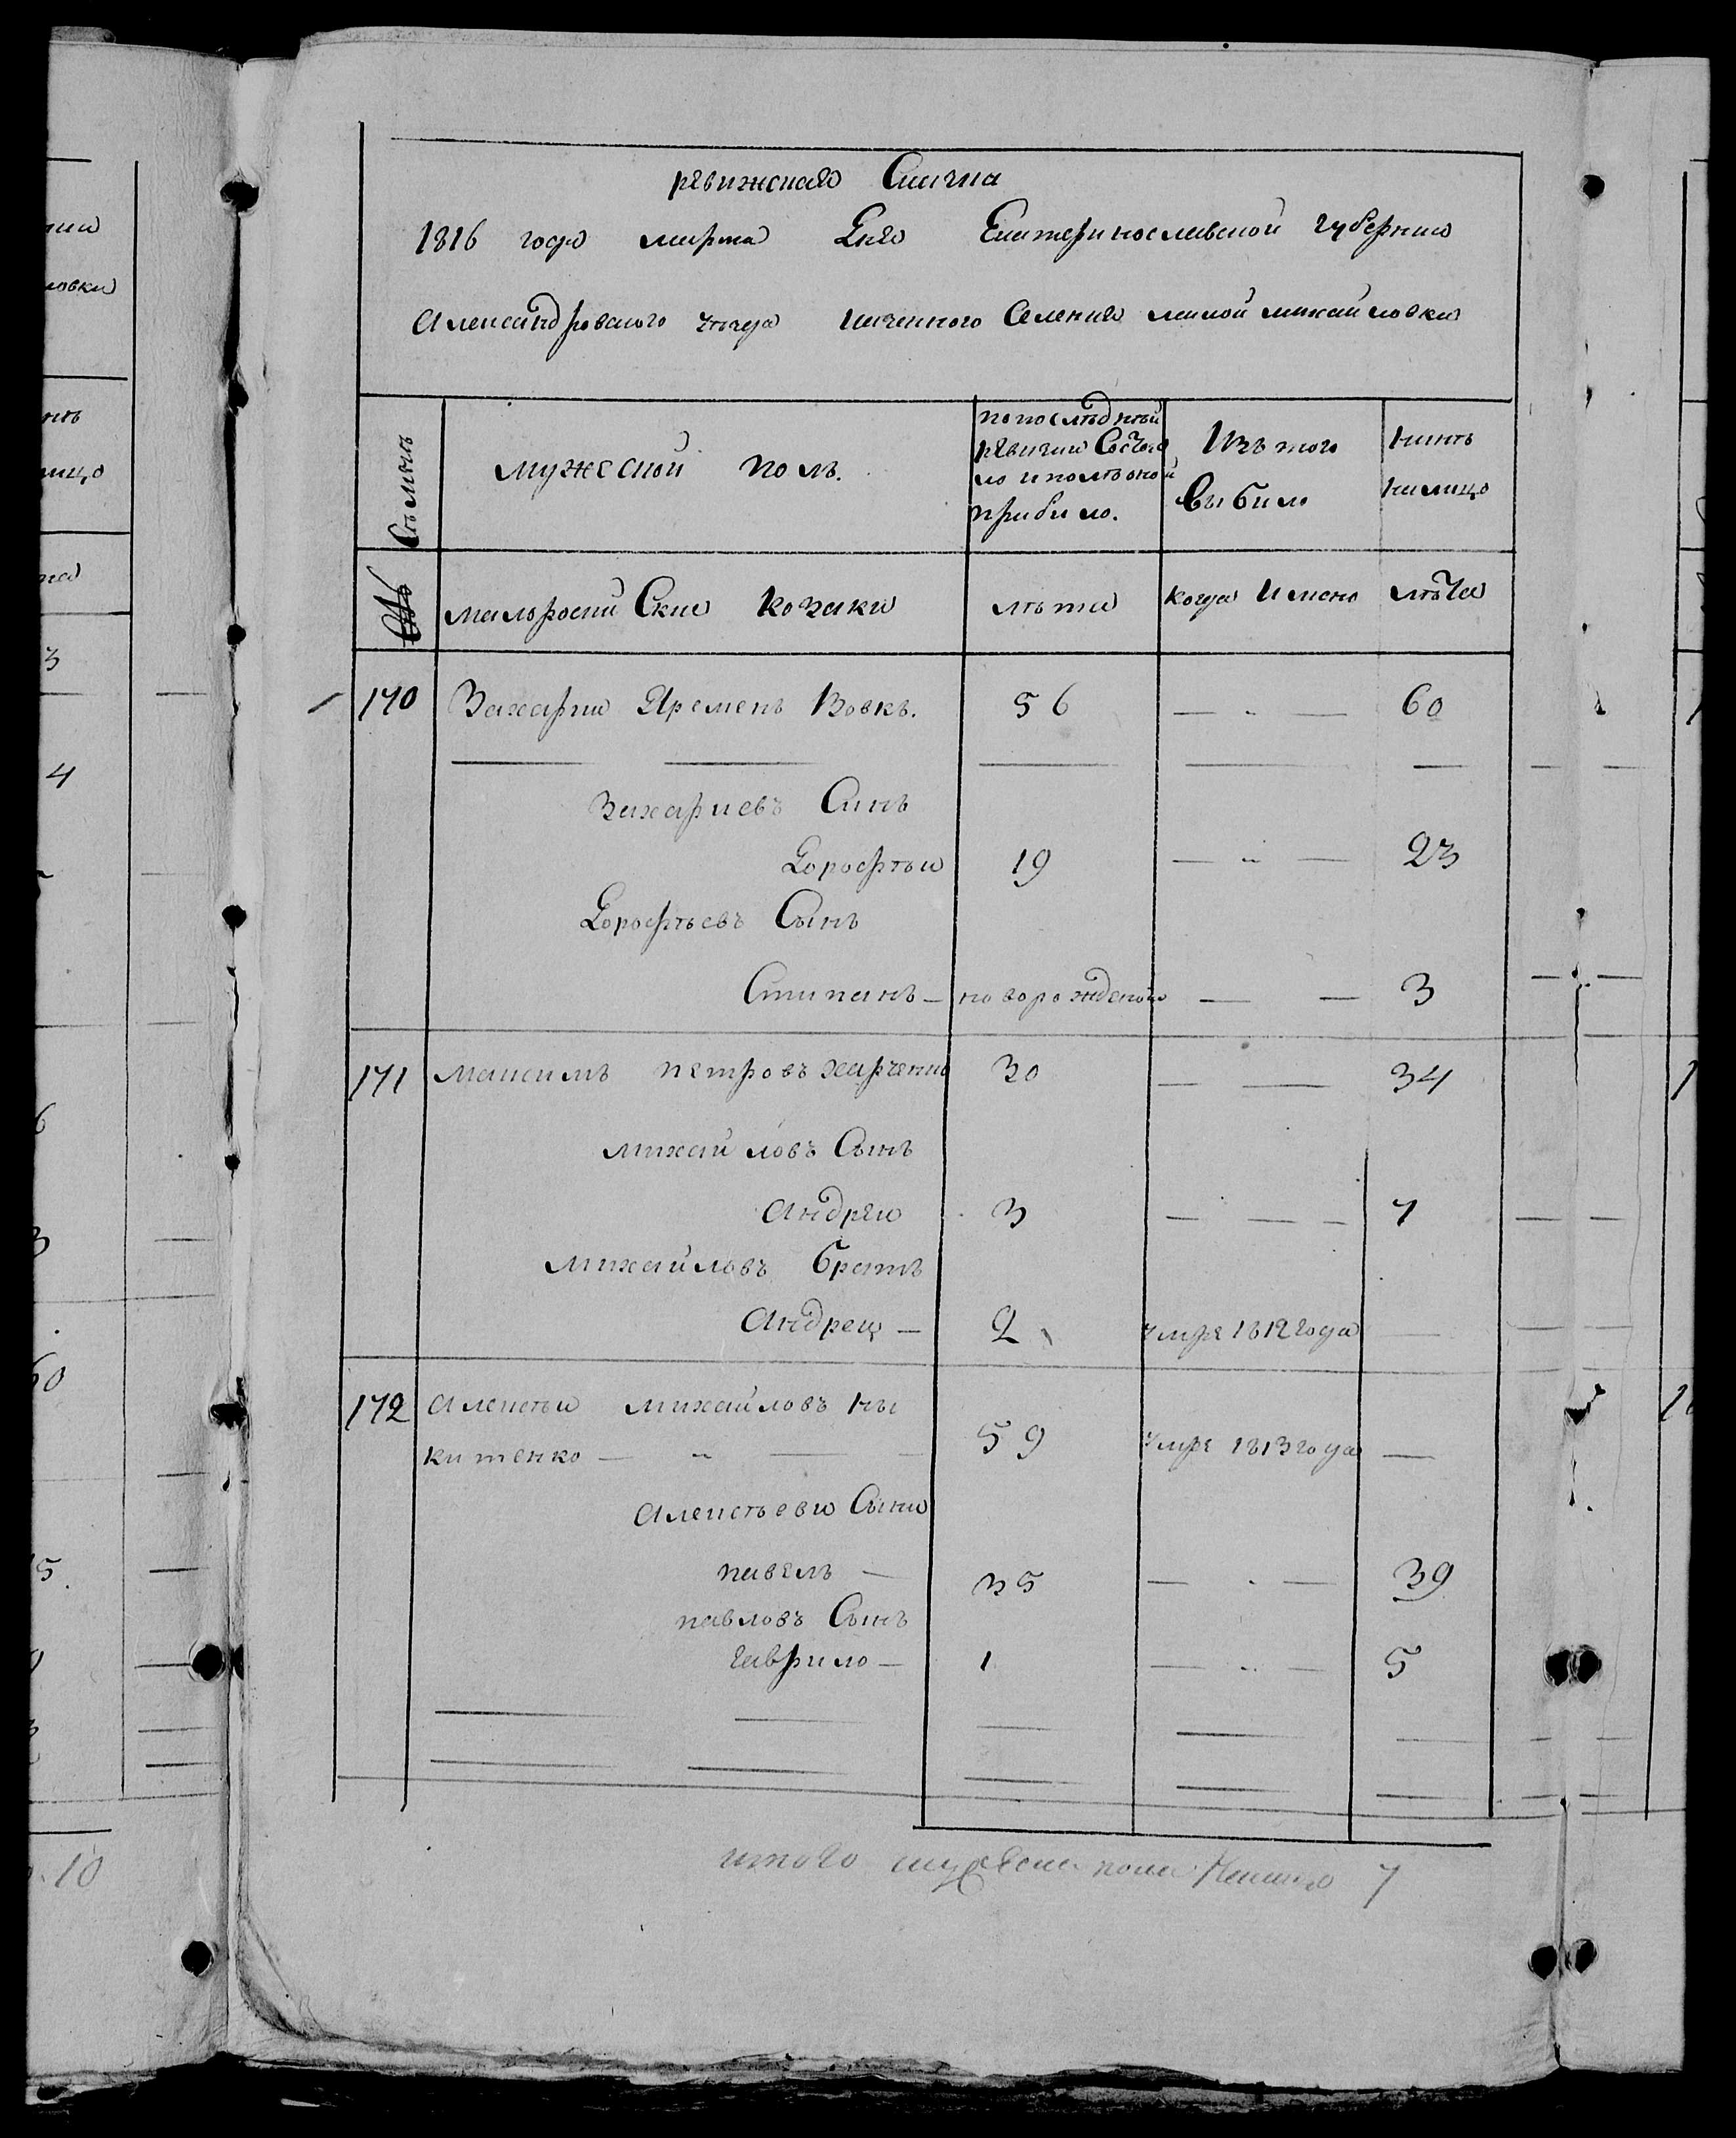 ревижская Скаска
1816 года марта Дня Екатеринославской губернии
Александровского уезда казенного Селения малой михайловки
Семьи
мужеской полъ.
По последней ревизии Состояло и после оной прибыло.
Изъ того Выбыло
Ныне на лицо
малороссийские козаки
лѣта
когда Имено
лѣта
170 Захарии Яременъ Вовкъ. 56 — " — 60
Захариевъ Синъ
Дорофѣи 19 — " — 23
Дорофѣевъ Сынъ
Стипанъ — новорожденой — — 3
171 Максимъ петровъ харченко 30 — — 34
михайловъ Сынъ
Андреи 3 — — — 7
Михайловъ братъ
Андрей — 2 умре 1812 года —
172 Алексѣи михайловъ Ни
китенко — " — 59 умре 1813 года —
Алексѣеви Сыни
павелъ — 35 — . — 39
павловъ Сынъ
гаврило — 1 — " — 5
итого мужеска пола Налицо 7
нъ
лицо
3
4
6
3
60
5.
10